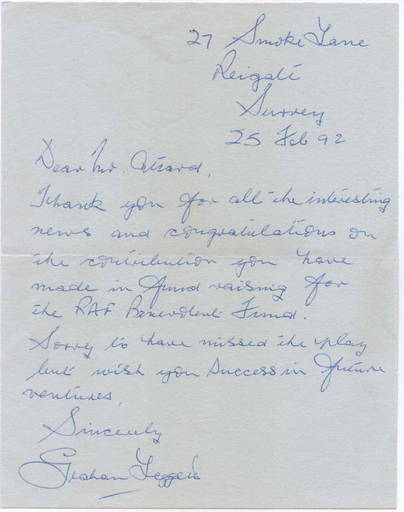 27 Smoke Lane
Reigate
Surrey
25 Feb 92
Dear Mr
Thank you for all the interesting
news and congratulations on
the contribution you have
made in fund raising for
the RAF Benevolent Fund.
Sorry to have missed the play
but wish you success in future
ventures.
Sincerely
Graham Leggett